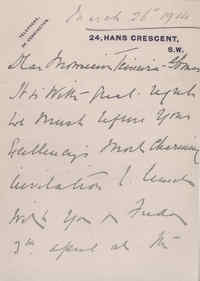 March 26th 1914
TELEPHONE,
KENSINGTON.
24, HANS CRESCENT,
S.W.
Dear Monsieur Teixeira-Gomes
It is with great regret
we must refuse Your
Excellency's most charming
invitation to lunch
with you on Friday
3rd April at the